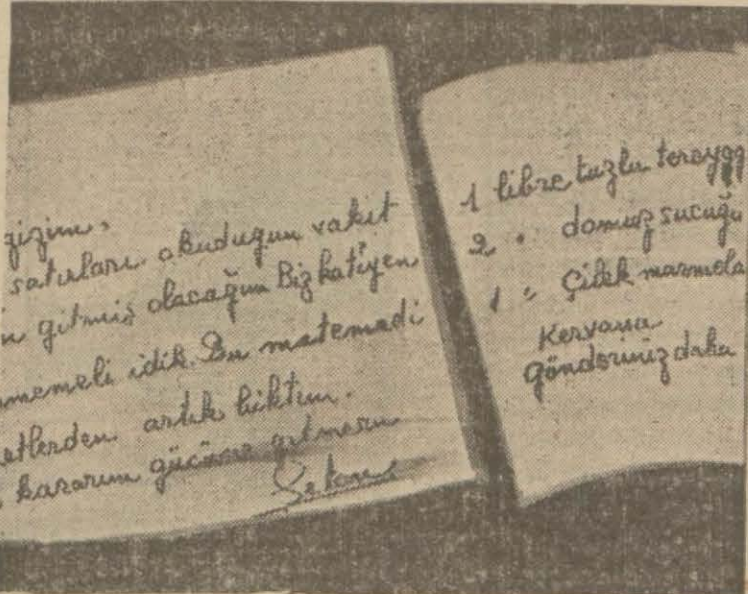 gizim,
satırları okuduğun vakit
gitmiş olacağım Biz kat'iyen
memeli idik. Bu matemadi
etlerden artık bıktım.
kararım gücüne gitmesin
1 libre tuzlu tereyağ
2 " domuz sucuğu
1 " Çilek marmela
Kervana
gönderiniz daha